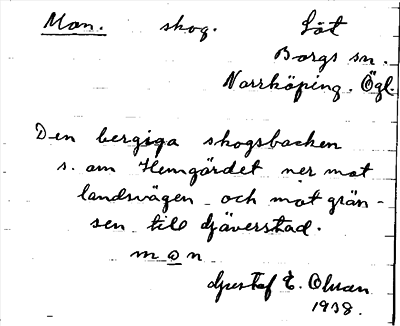 Mon. skog. Löt
Borgs sn.
Norrköping. Ögl.
Den bergiga skogsbacken
s. om Hemgärdet ner mot
landsvägen och mot grän-
sen till djäverstad.
mon
Gustaf E. Olsson
1938.